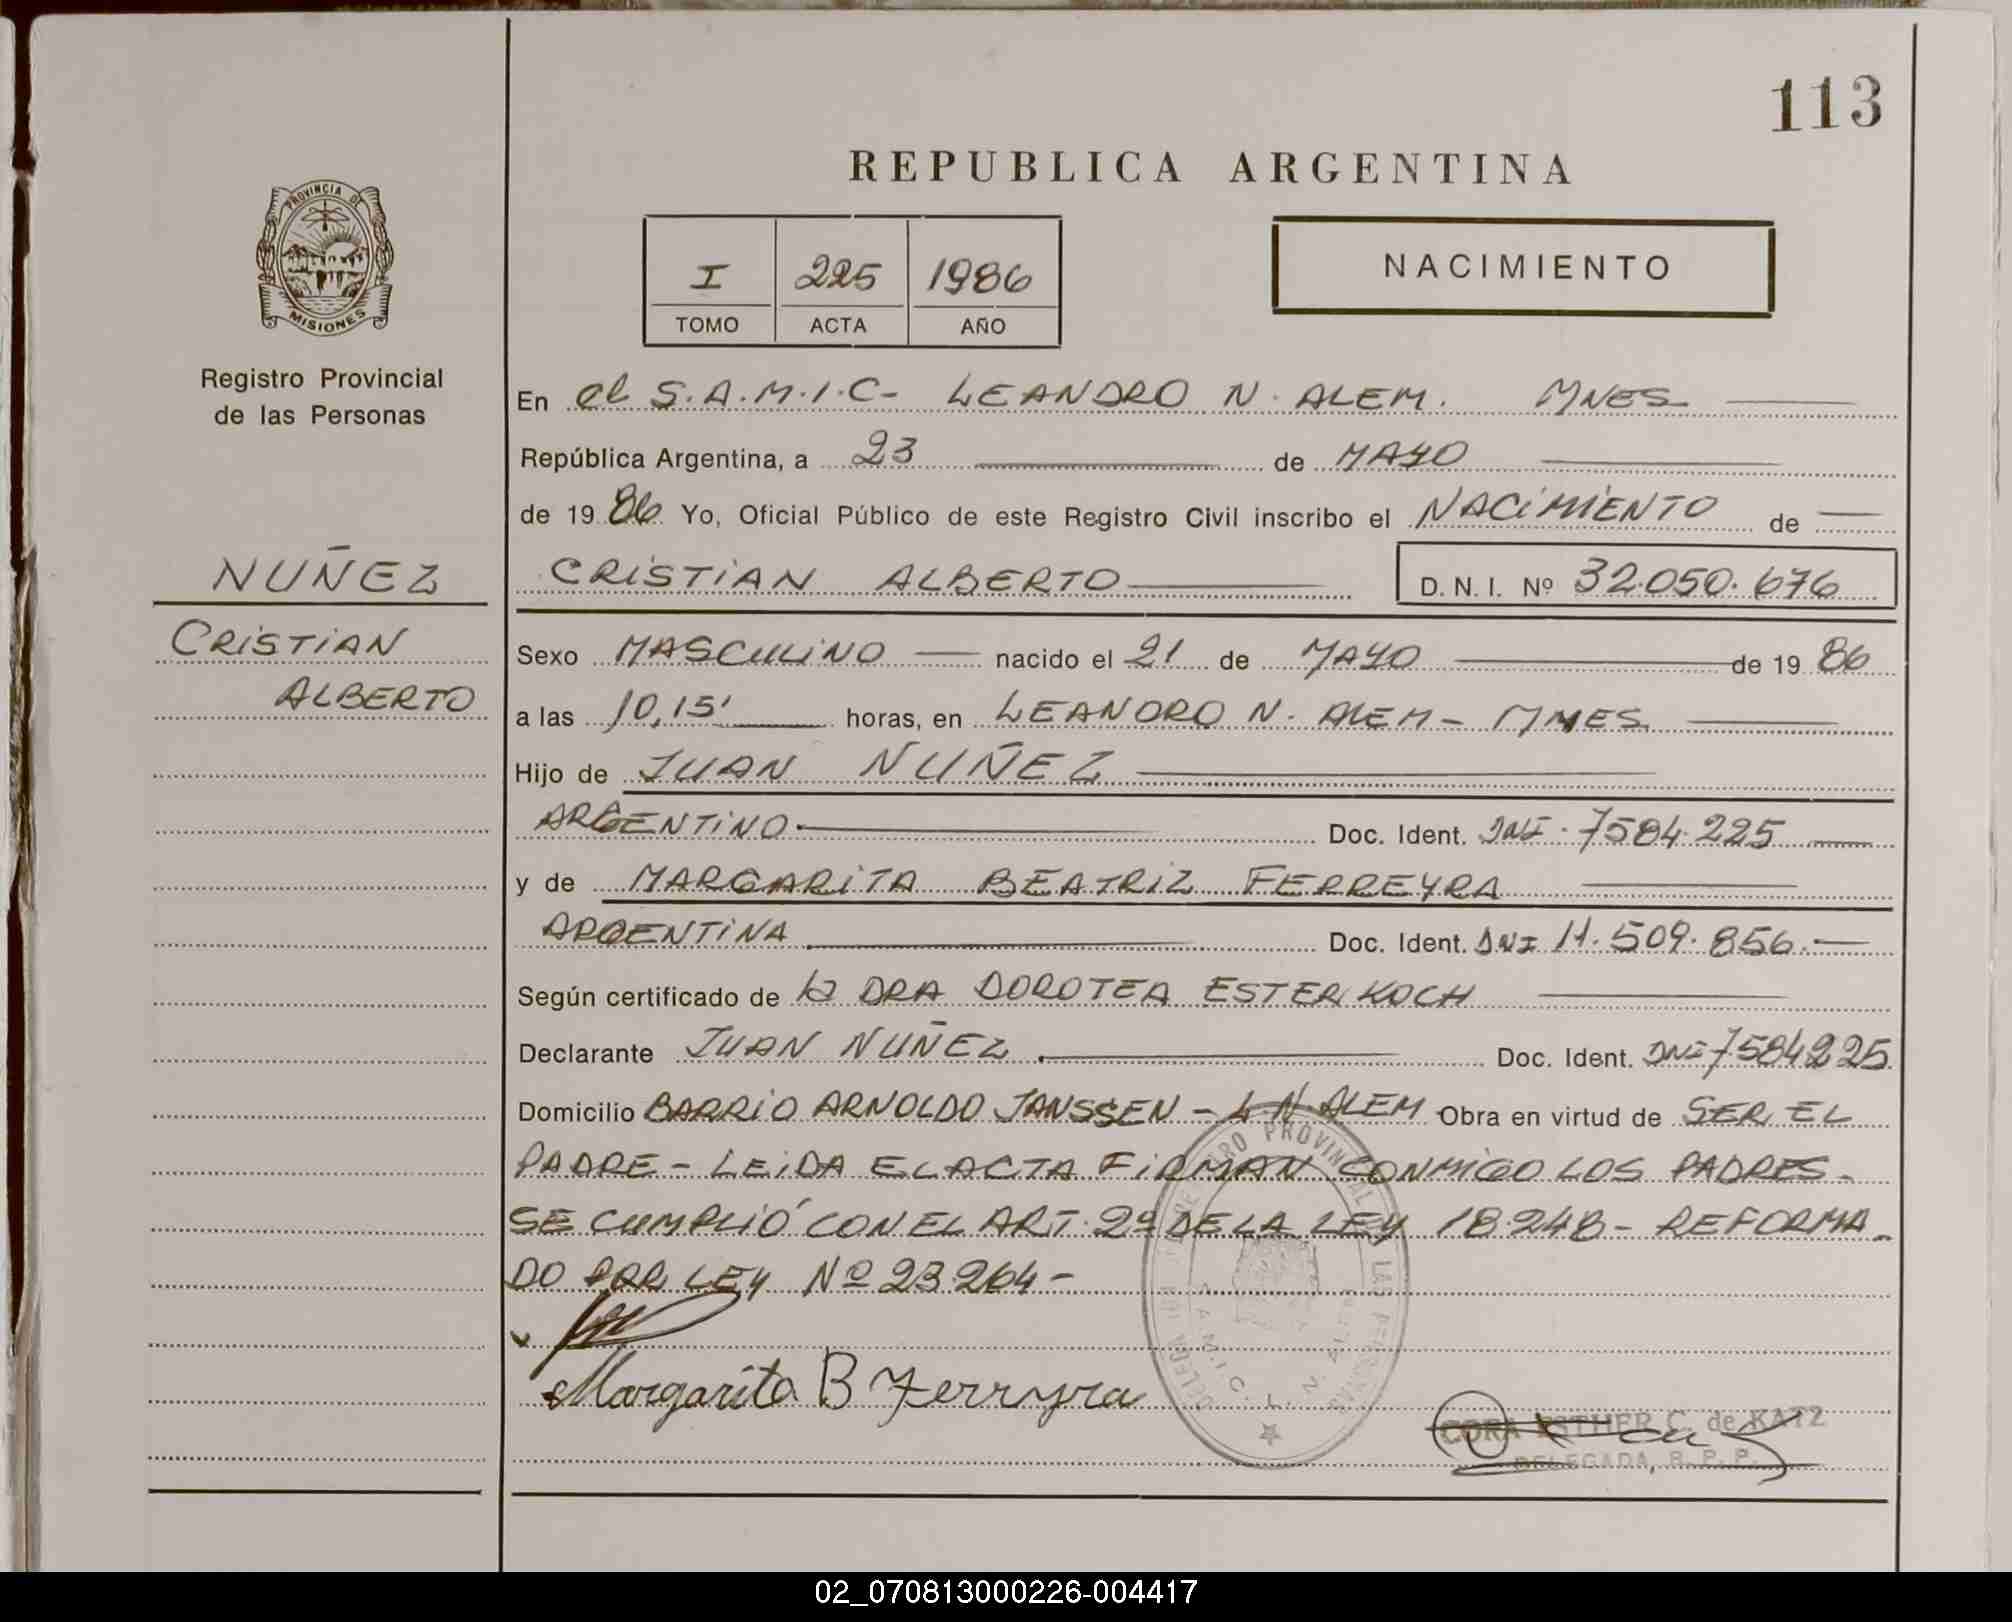 113
REPUBLICA ARGENTINA
PROVINCIA DE
MISIONES
Registro Provincial
de las Personas
I 225 1986
TOMO ACTA AÑO
NACIMIENTO
En el S.A.M.I.C- LEANDRO N. ALEM. MNES
República Argentina, a 23 de MAYO
de 19 86 Yo, Oficial Público de este Registro Civil inscribo el NACIMIENTO de
CRISTIAN ALBERTO D. N. I. Nº 32.050.676
NUÑEZ
CRISTIAN
ALBERTO
Sexo MASCULINO nacido el 21 de MAYO de 19 86
a las 10,15' horas, en LEANDRO N. ALEM - MNES
Hijo de JUAN NUÑEZ
ARGENTINO Doc. Ident. DNI. 7584.225
y de MARGARITA BEATRIZ FERREYRA
ARGENTINA Doc. Ident. DNI 11.509.856.
Según certificado de la DRA DOROTEA ESTER KOCH
Declarante JUAN NUÑEZ Doc. Ident. DNI 7.584225
Domicilio BARRIO ARNOLDO JANSSEN - L.N.ALEM Obra en virtud de SER EL
PADRE - LEIDA EL ACTA FIRMAN CONMIGO LOS PADRES -
SE CUMPLIÓ CON EL ART. 2º DE LA LEY 18.248 - REFORMA-
DO POR LEY Nº 23.264 -
Margarita B Ferryra
CORA ESTHER C. de KATZ
DELEGADA, R. P. P.
02_070813000226-004417